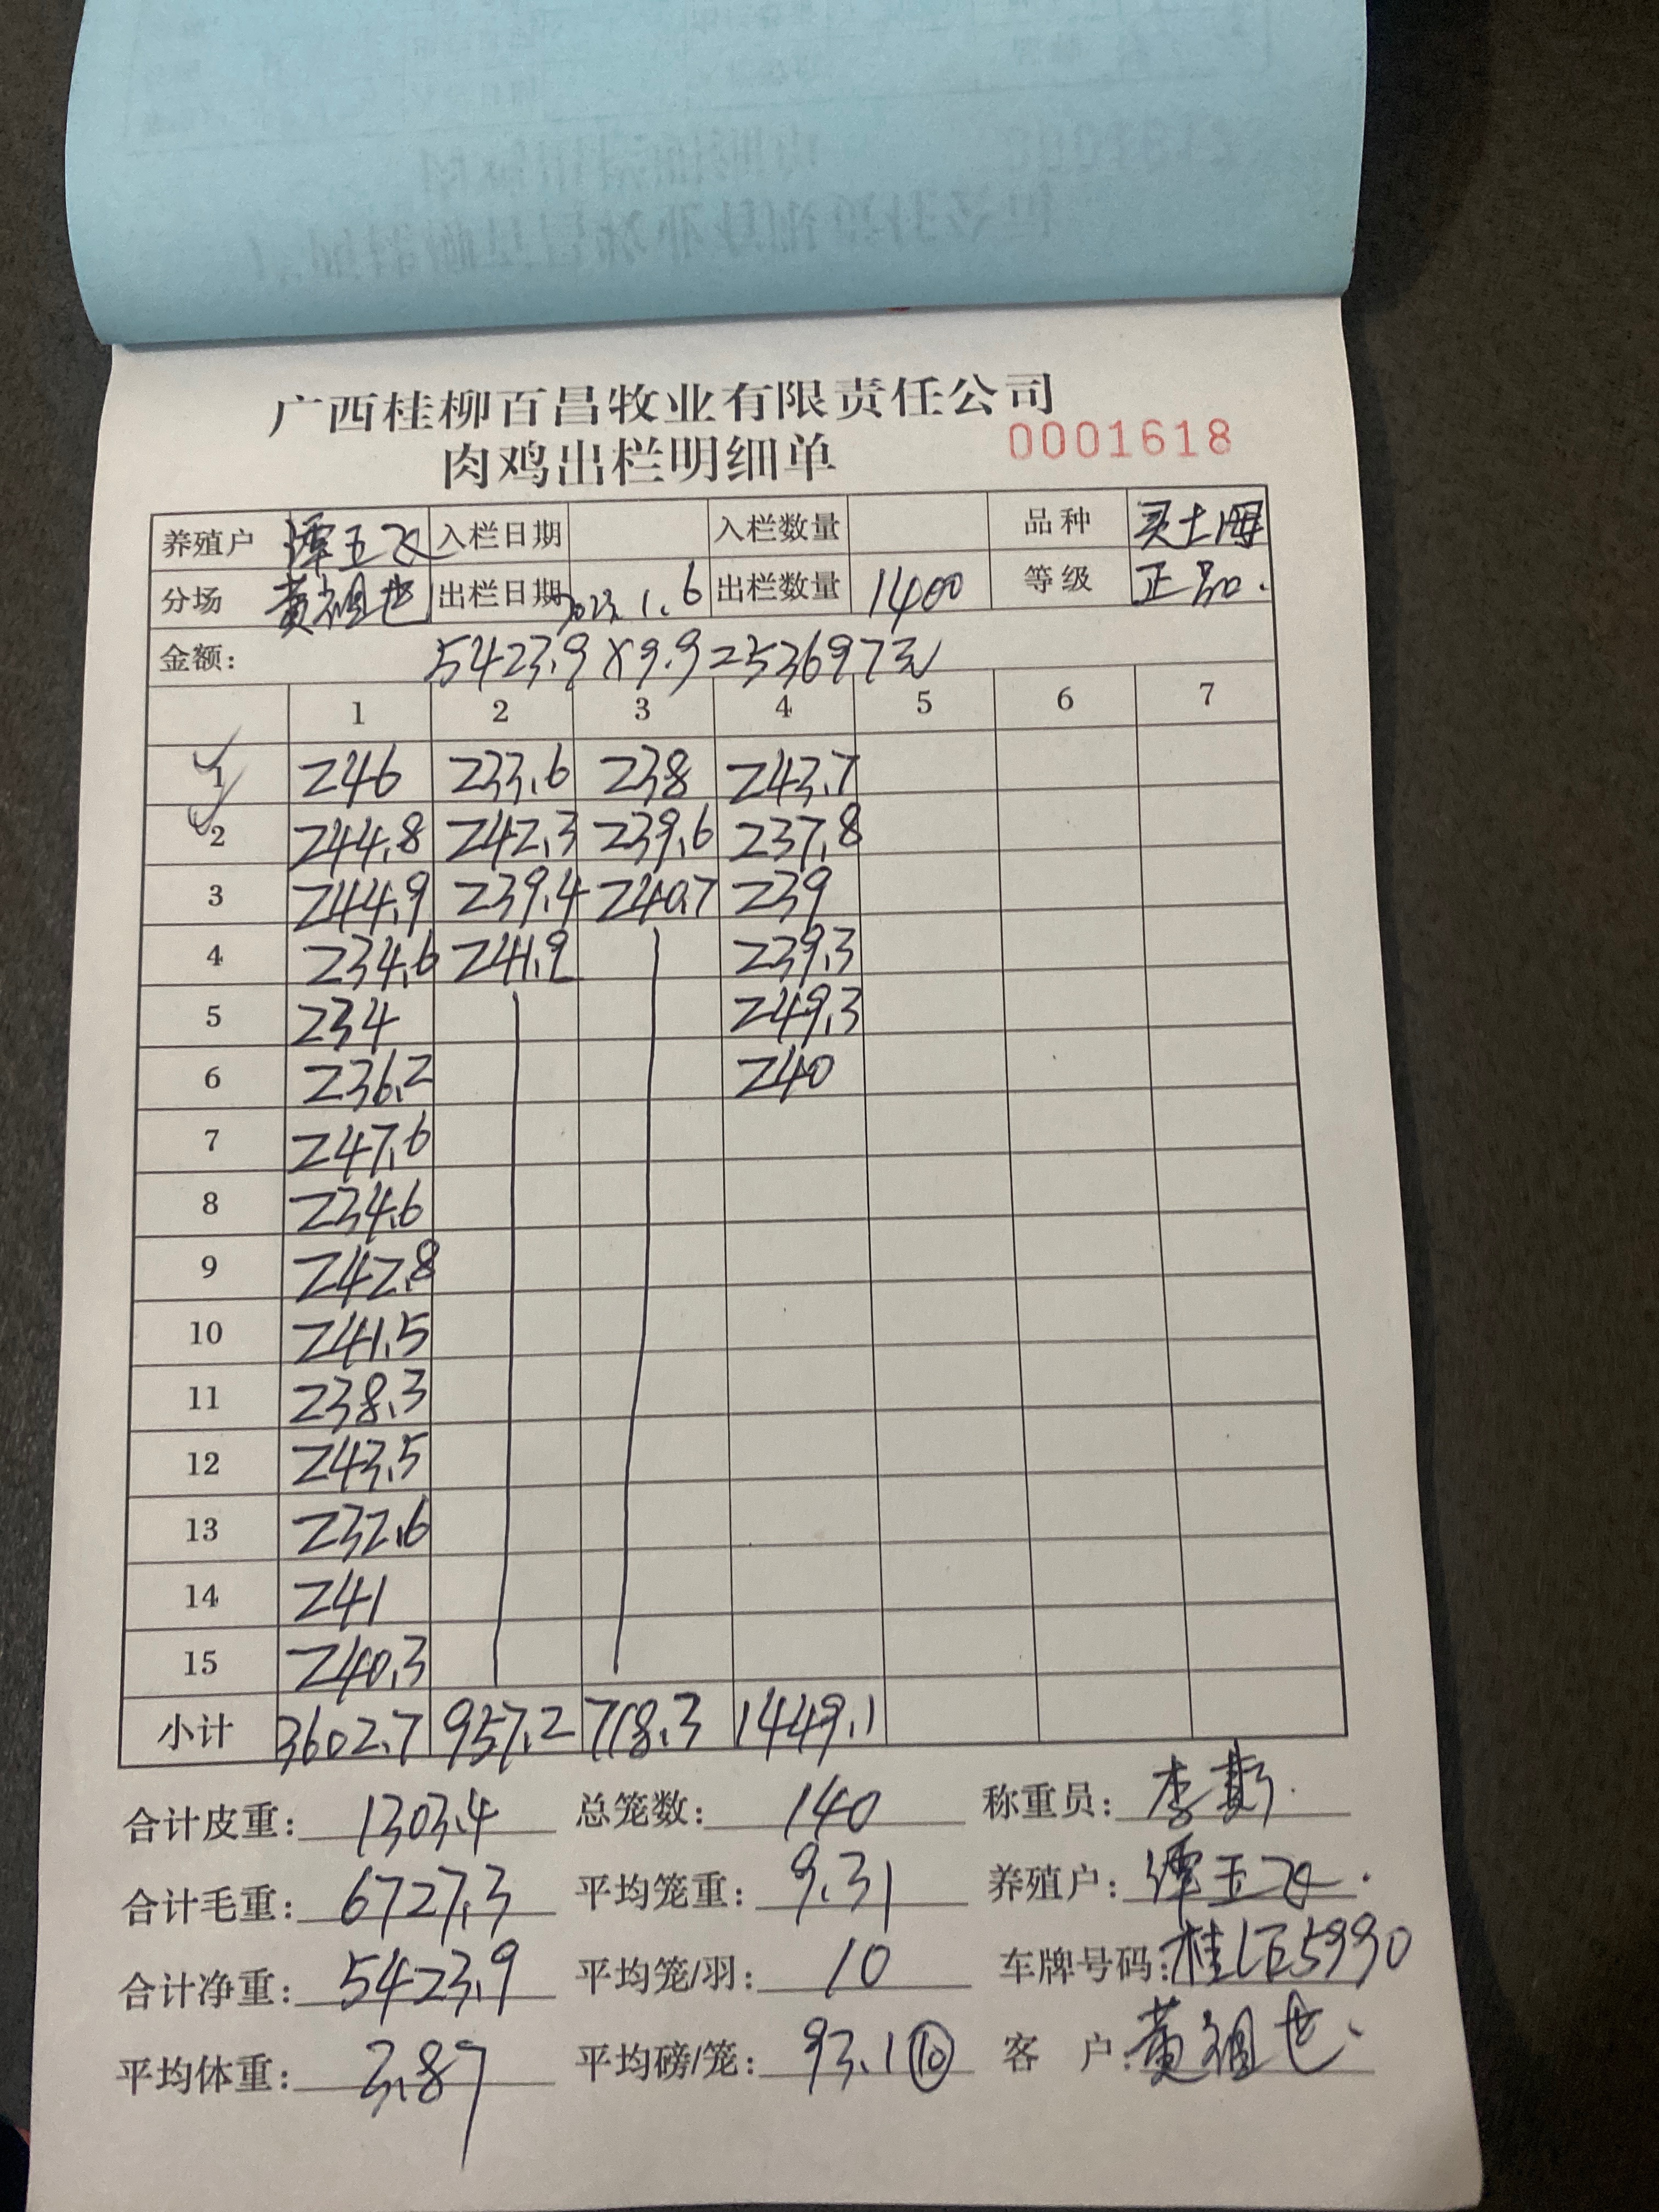 广西桂柳百昌牧业有限责任公司
肉鸡出栏明细单 0001618
养殖户 谭玉飞 入栏日期 入栏数量 品种
分场 黄祖也 出栏日期 2023.1.6 出栏数量 1400 等级 正品.
金额: 5423.9×9.9=53697元
1 2 3 4 5 6 7
1 246 233.6 238 243.7
2 244.8 242.3 239.6 237.8
3 244.9 239.4 240.7 239
4 234.6 241.9 239.3
5 234 249.3
6 236.2 240
7 247.6
8 234.6
9 242.8
10 241.5
11 238.3
12 243.5
13 232.6
14 241
15 240.3
小计 3602.7 957.2 718.3 1449.1
合计皮重: 1303.4 总笼数: 140 称重员: 李
合计毛重: 6727.3 平均笼重: 9.31 养殖户: 谭玉飞.
合计净重: 5423.9 平均笼/羽: 10 车牌号码: 桂LE5990
平均体重: 3.87 平均磅/笼: 93.1⑩ 客户: 黄祖也.